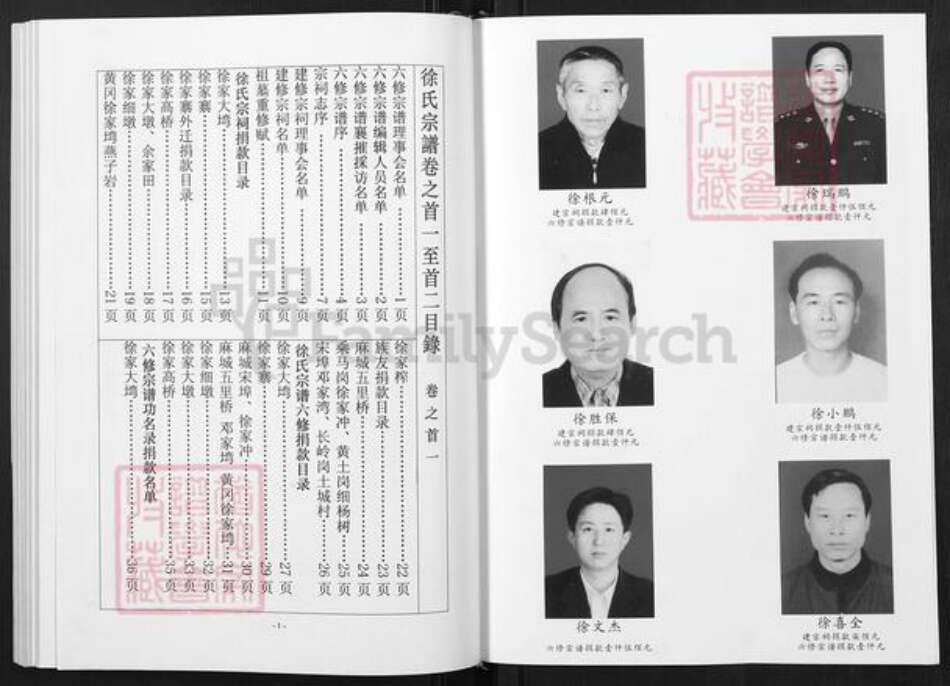 徐氏宗譜卷之首一至首二目錄 卷之首一
六修宗谱理事会名单 1页
六修宗谱编辑人员名单 2页
六修宗谱襄摧採访名单 3页
六修宗谱序 4页
宗祠志序 7页
建修宗祠理事会名单 9页
建修宗祠名单 10页
祖墓重修赋 11页
徐氏宗祠捐款目录
徐家大塆 13页
徐家寨 15页
徐家寨外迁捐款目录 16页
徐家高桥 17页
徐家大墩、余家田 18页
徐家细墩 19页
黄冈徐家塆燕子岩 21页
徐家榨 22页
族友捐款目录 23页
麻城五里桥 24页
乘马岗徐家冲、黄土岗细杨树 25页
宋埠邓家湾、长岭岗土城村 26页
徐氏宗谱六修捐款目录
徐家大塆 27页
徐家寨 29页
麻城宋埠、徐家冲 30页
麻城五里桥 邓家塆 黄冈徐家塆 31页
徐家细墩 32页
徐家大墩 33页
徐家高桥 35页
六修宗谱功名录捐款名单
徐家大塆 36页
-1-
徐根元
建宗祠捐款肆佰元
六修宗谱捐款壹仟元
徐瑞鹏
建宗祠捐款壹仟伍佰元
六修宗谱捐款壹仟元
徐胜保
建宗祠捐款肆佰元
六修宗谱捐款壹仟元
徐小鹏
建宗祠捐款壹仟伍佰元
六修宗谱捐款壹仟元
徐文杰
六修宗谱捐款壹仟伍佰元
徐喜全
六修宗谱捐款壹仟元
FamilySearch